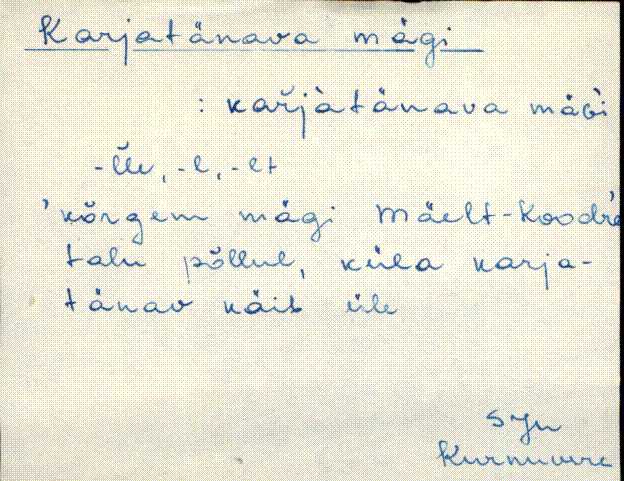 Karjatänava mägi
: kařjàtänava mäGi
-lle, -l, -lt
'kõrgem mägi Mäelt-Koodre
talu põllul, küla karja-
tänav käib üle
SJn
Kurnuvere